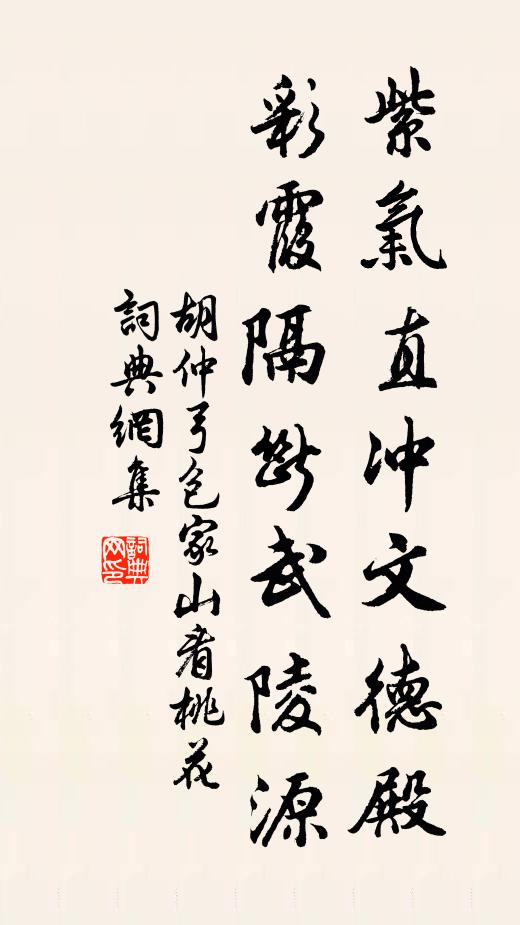 紫氣直冲文德殿
彩霞隔斷武陵源
胡仲弓包家山看桃花
詞典網集
詞典網印